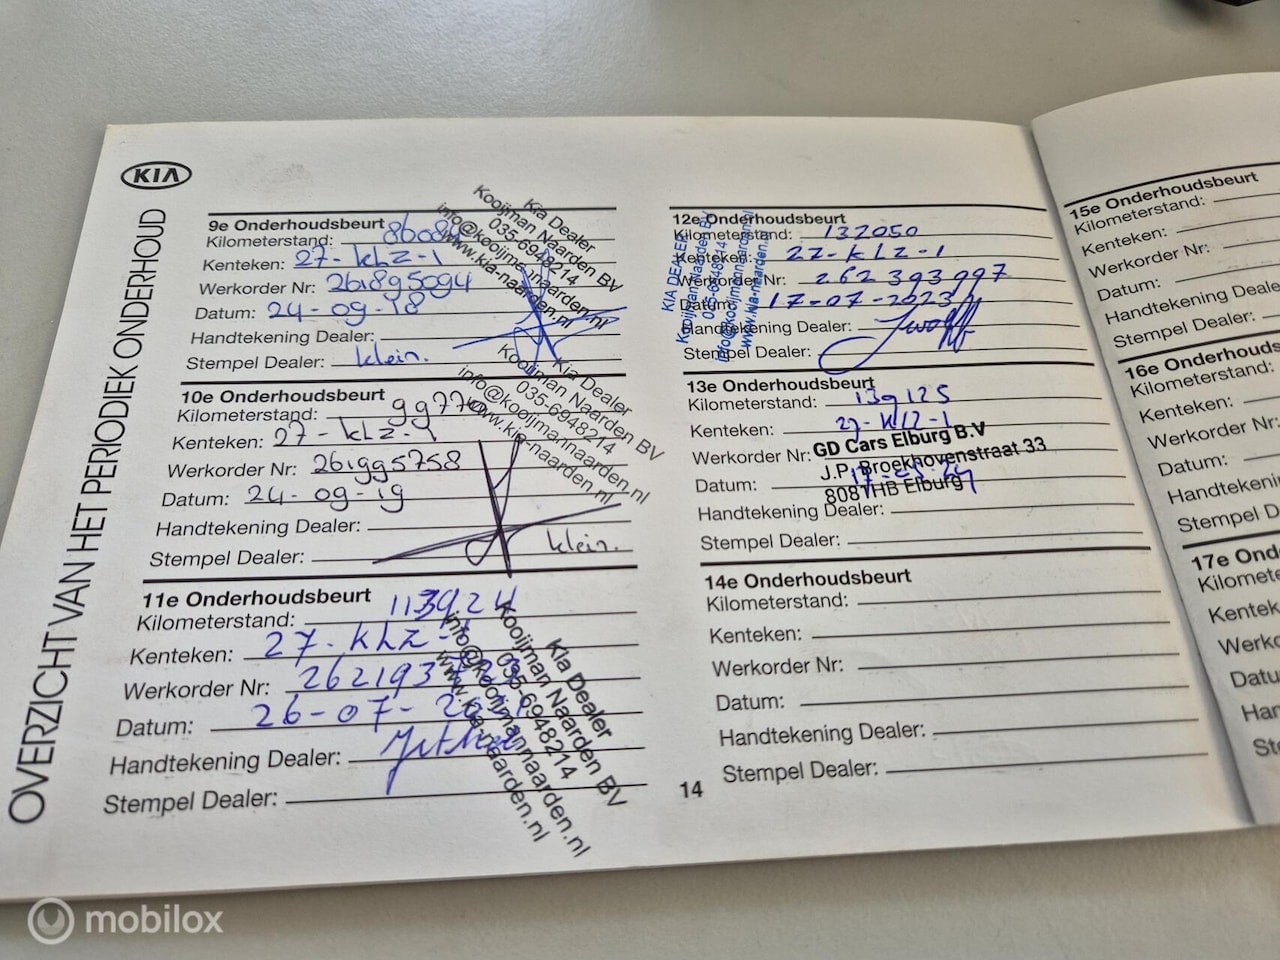 KIA
OVERZICHT VAN HET PERIODIEK ONDERHOUD
9e Onderhoudsbeurt
Kilometerstand:
Kenteken: 27-KHZ-1
Werkorder Nr: 261895094
Datum: 24-09-18
Handtekening Dealer:
Stempel Dealer: klein.
Kia Dealer
Kooijman Naarden BV
035-6948214
info@kooijmannaarden.nl
www.kia-naarden.nl
10e Onderhoudsbeurt
Kilometerstand: 99770
Kenteken: 27-KHZ-1
Werkorder Nr: 261995758
Datum: 24-09-19
Handtekening Dealer:
Stempel Dealer: klein.
Kia Dealer
Kooijman Naarden BV
035-6948214
info@kooijmannaarden.nl
www.kia-naarden.nl
11e Onderhoudsbeurt
Kilometerstand: 113924
Kenteken: 27-KHZ-1
Werkorder Nr: 262193
Datum: 26-07-
Handtekening Dealer:
Stempel Dealer:
Kia Dealer
Kooijman Naarden BV
035-6948214
info@kooijmannaarden.nl
www.kia-naarden.nl
12e Onderhoudsbeurt
Kilometerstand: 132050
Kenteken: 27-KHZ-1
Werkorder Nr: 262393997
Datum: 17-07-2023
Handtekening Dealer:
Stempel Dealer:
KIA DEALER
Kooijman Naarden BV
035-6948214
info@kooijmannaarden.nl
www.kia-naarden.nl
13e Onderhoudsbeurt
Kilometerstand: 139125
Kenteken: 27-KHZ-1
Werkorder Nr:
GD Cars Elburg B.V
J.P. Broekhovenstraat 33
8081HB Elburg
Datum:
Handtekening Dealer:
Stempel Dealer:
14e Onderhoudsbeurt
Kilometerstand:
Kenteken:
Werkorder Nr:
Datum:
Handtekening Dealer:
Stempel Dealer:
14
15e Onderhoudsbeurt
Kilometerstand:
Kenteken:
Werkorder Nr:
Datum:
Handtekening Deale
Stempel Dealer:
16e Onderhoudsbe
Kilometerstand:
Kenteken:
Werkorder Nr:
Datum:
Handtekenin
Stempel D
17e Ond
Kilomete
Kenteke
Werko
Datu
Han
Ste
mobilox